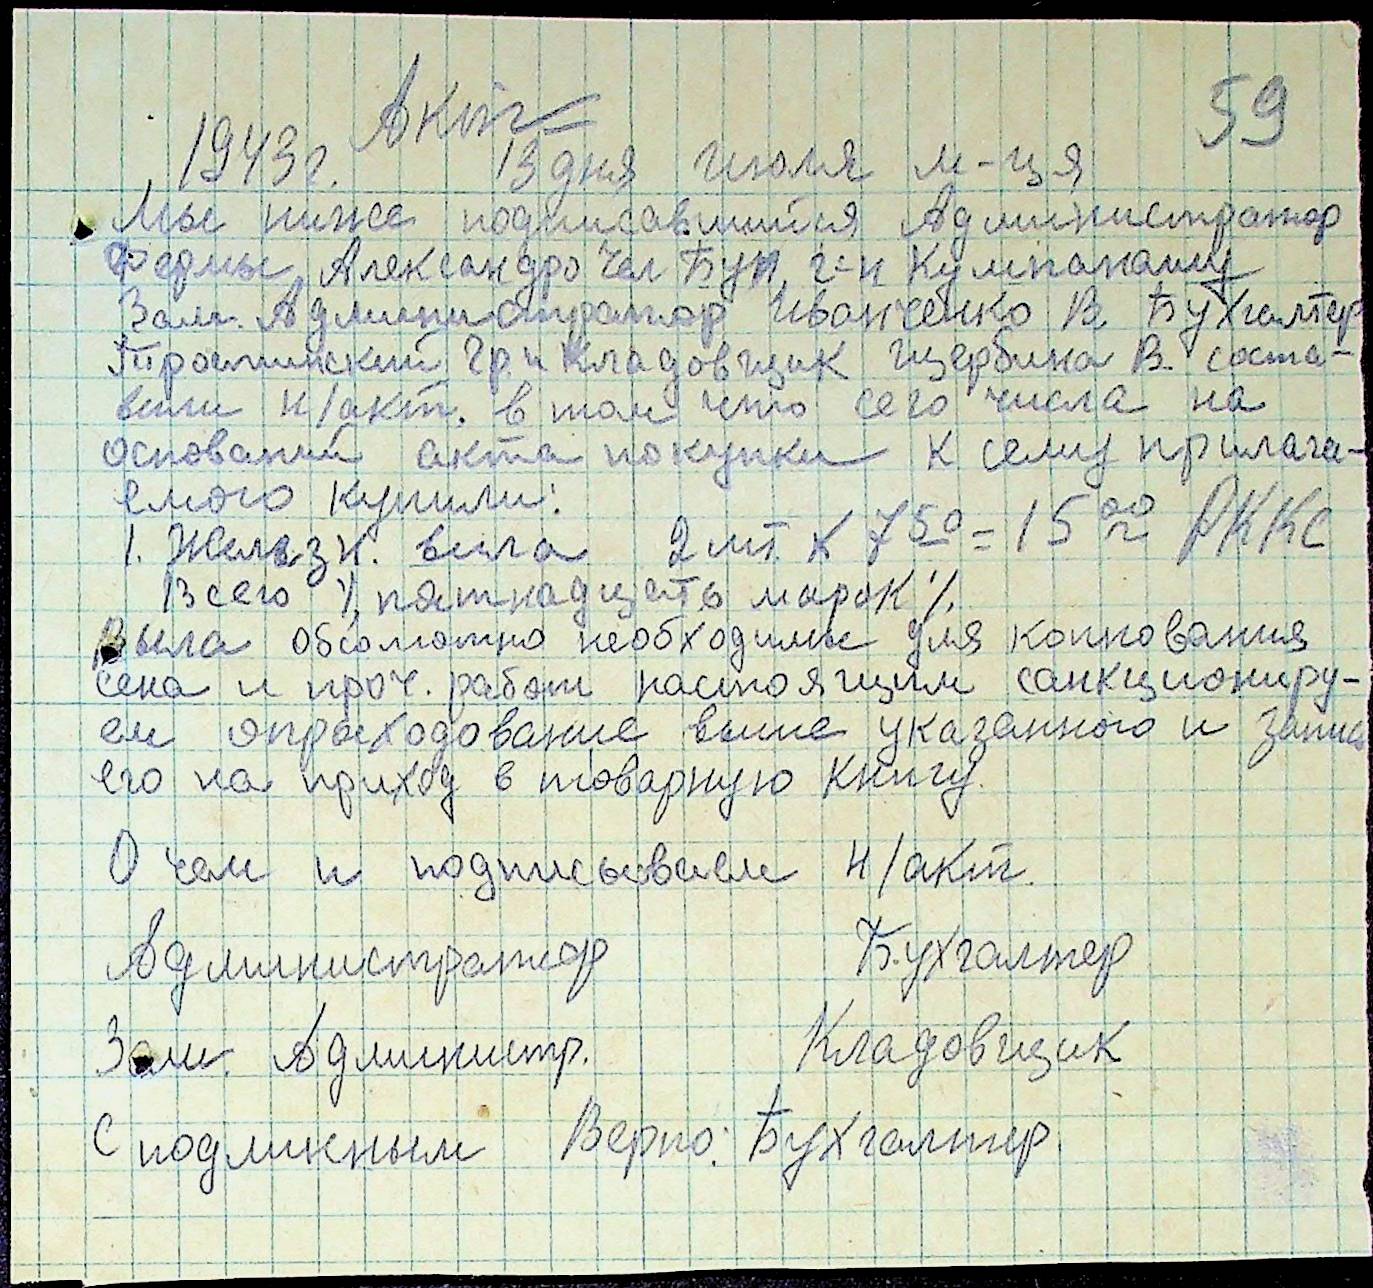 59
Акт
1943г. 13 дня июля м-ця
Мы ниже подписавшийся Администратор
Фермы Александро Чел Бун г-н Кумпанашу
Зам. Администратор Иванченко В. Бухгалтер
Гр. и Кладовщик Щербина В. соста-
вили н/акт. в том что сего числа на
оснований акта покупки к сему прилага-
емого купили:
1. Железн. вила 2 шт. х 7 50 = 15 00 РККС
Всего % пятнадцать марок %.
Выла обсолютно необходимы для копнования
сена и проч. работ настоящим санкциониру-
ем оприходование выше указанного и запись
его на приход в товарную книгу.
О чем и подписываем н/акт.
Администратор Бухгалтер
Зам. Администр. Кладовщик
С подлинным Верно: Бухгалтер.